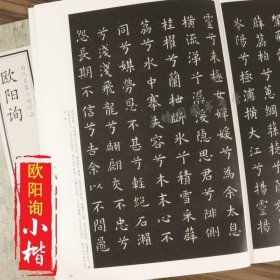 岑陽兮極浦橫大江兮揚
靈兮未極女嬋媛兮為余太息
橫流涕兮潺湲隱思君兮陫側
桂櫂兮蘭枻斲冰兮積雪采薜
荔兮水中搴芙蓉兮木末心不
同兮媒勞恩不甚兮輕絕石瀨
兮淺淺飛龍兮翩翩交不忠兮
怨長期不信兮告余以不閒鼂
欧阳询
欧阳询
小楷